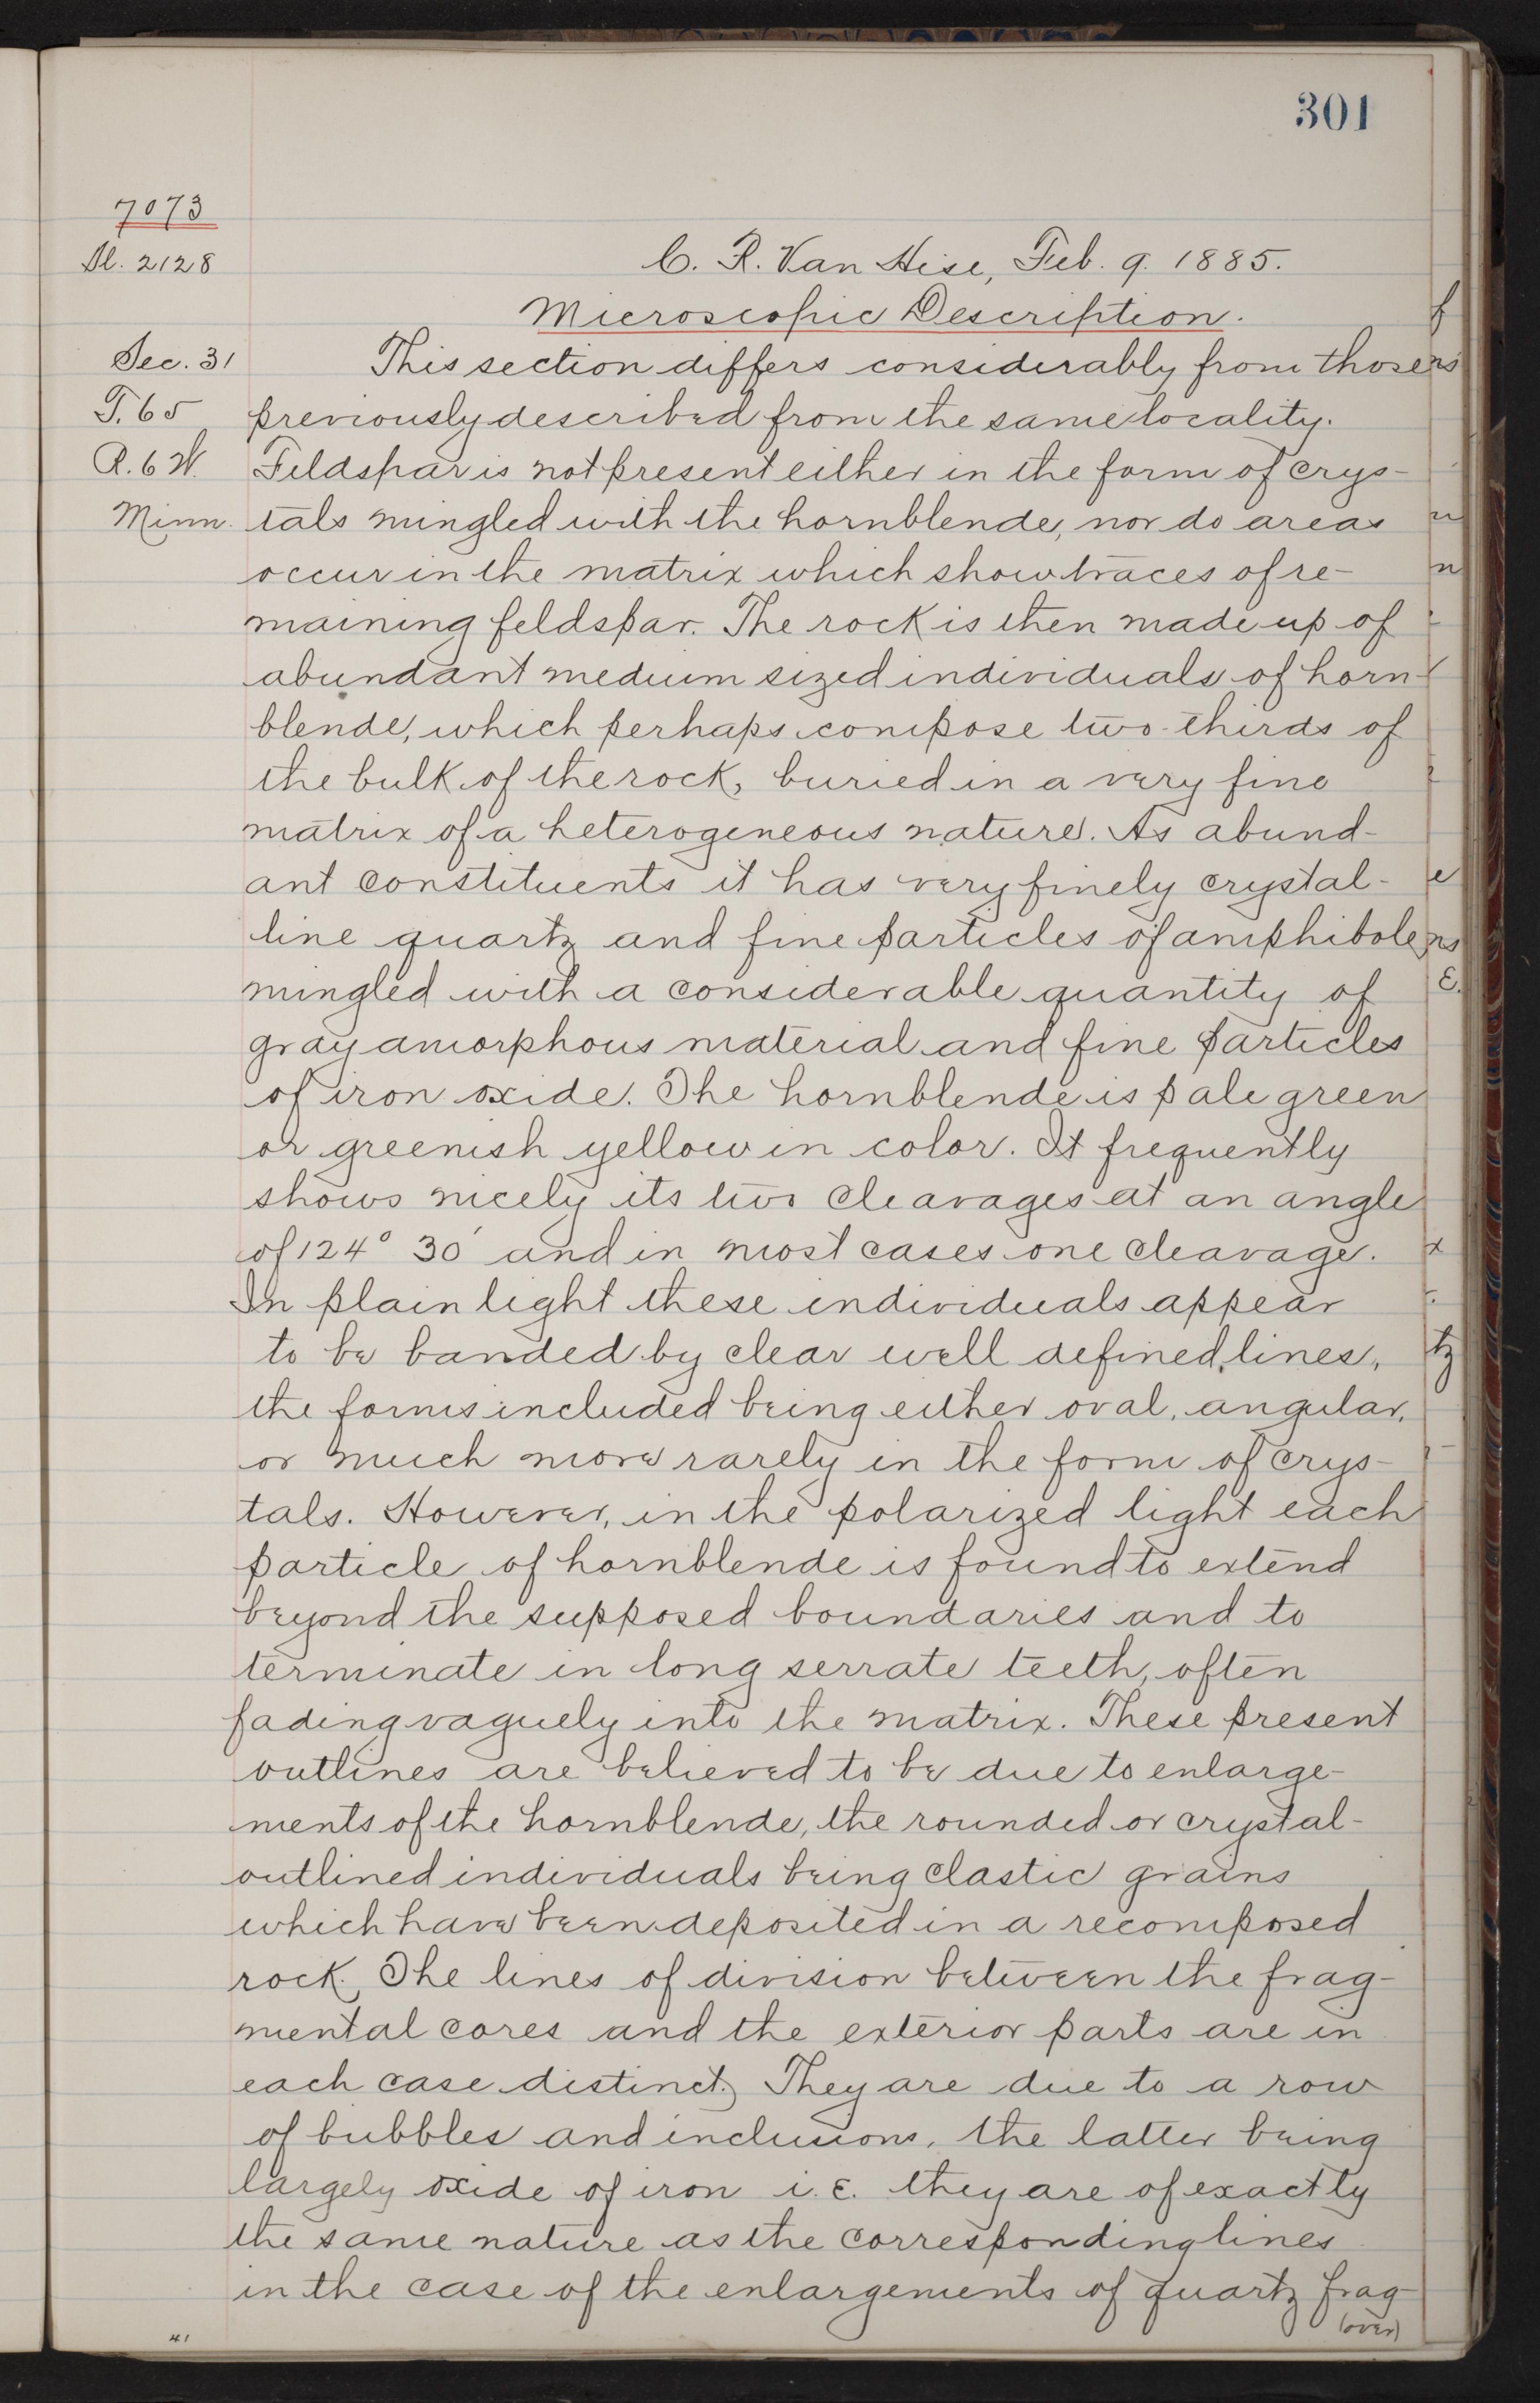 301
7073
Sl. 2128
C. R. Van Hise, Feb. 9. 1885.
Microscopic Description.
Sec. 31
T. 65
R. 6 W.
Minn.
This section differs considerably from those
previously described from the same locality.
Feldspar is not present either in the form of crys-
tals mingled with the hornblende, nor do areas
occur in the matrix which show traces of re-
maining feldspar. The rock is then made up of
abundant medium sized individuals of horn-
blende, which perhaps compose two-thirds of
the bulk of the rock, buried in a very fine
matrix of a heterogeneous nature. As abund-
ant constituents it has very finely crystal-
line quartz and fine particles of amphibole,
mingled with a considerable quantity of
gray amorphous material and fine particles
of iron oxide. The hornblende is pale green
or greenish yellow in color. It frequently
shows nicely its two cleavages at an angle
of 124° 30' and in most cases one cleavage.
In plain light these individuals appear
to be banded by clear well defined lines,
the forms included being either oval, angular,
or much more rarely in the form of crys-
tals. However, in the polarized light each
particle of hornblende is found to extend
beyond the supposed boundaries and to
terminate in long serrate teeth, often
fading vaguely into the matrix. These present
outlines are believed to be due to enlarge-
ments of the hornblende, the rounded or crystal-
outlined individuals being clastic grains
which have been deposited in a recomposed
rock. The lines of division between the frag-
mental cores and the exterior parts are in
each case distinct. They are due to a row
of bubbles and inclusions, the latter being
largely oxide of iron i.e. they are of exactly
the same nature as the corresponding lines
in the case of the enlargements of quartz frag-
(over)
41